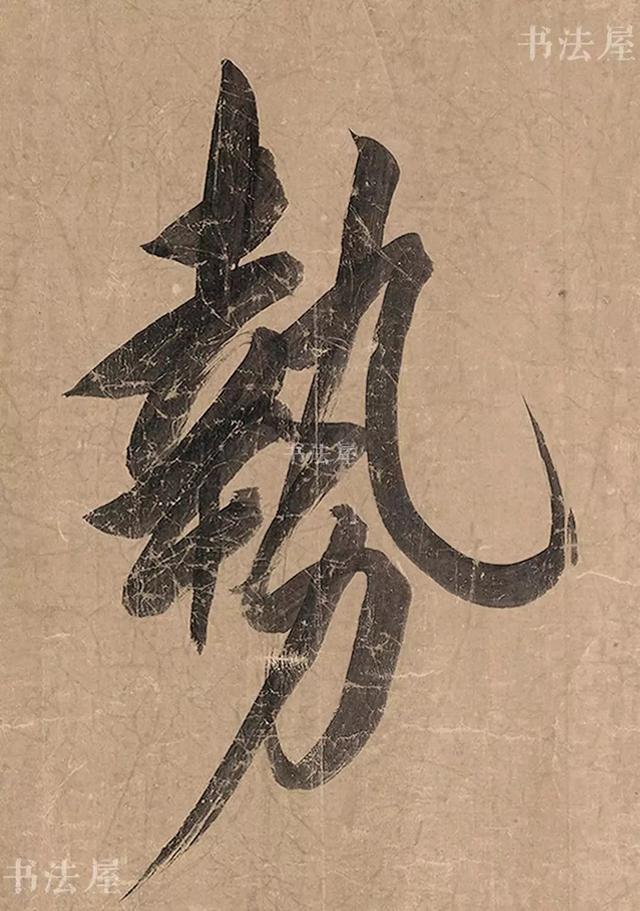 书法屋
勢
书法屋
书法屋